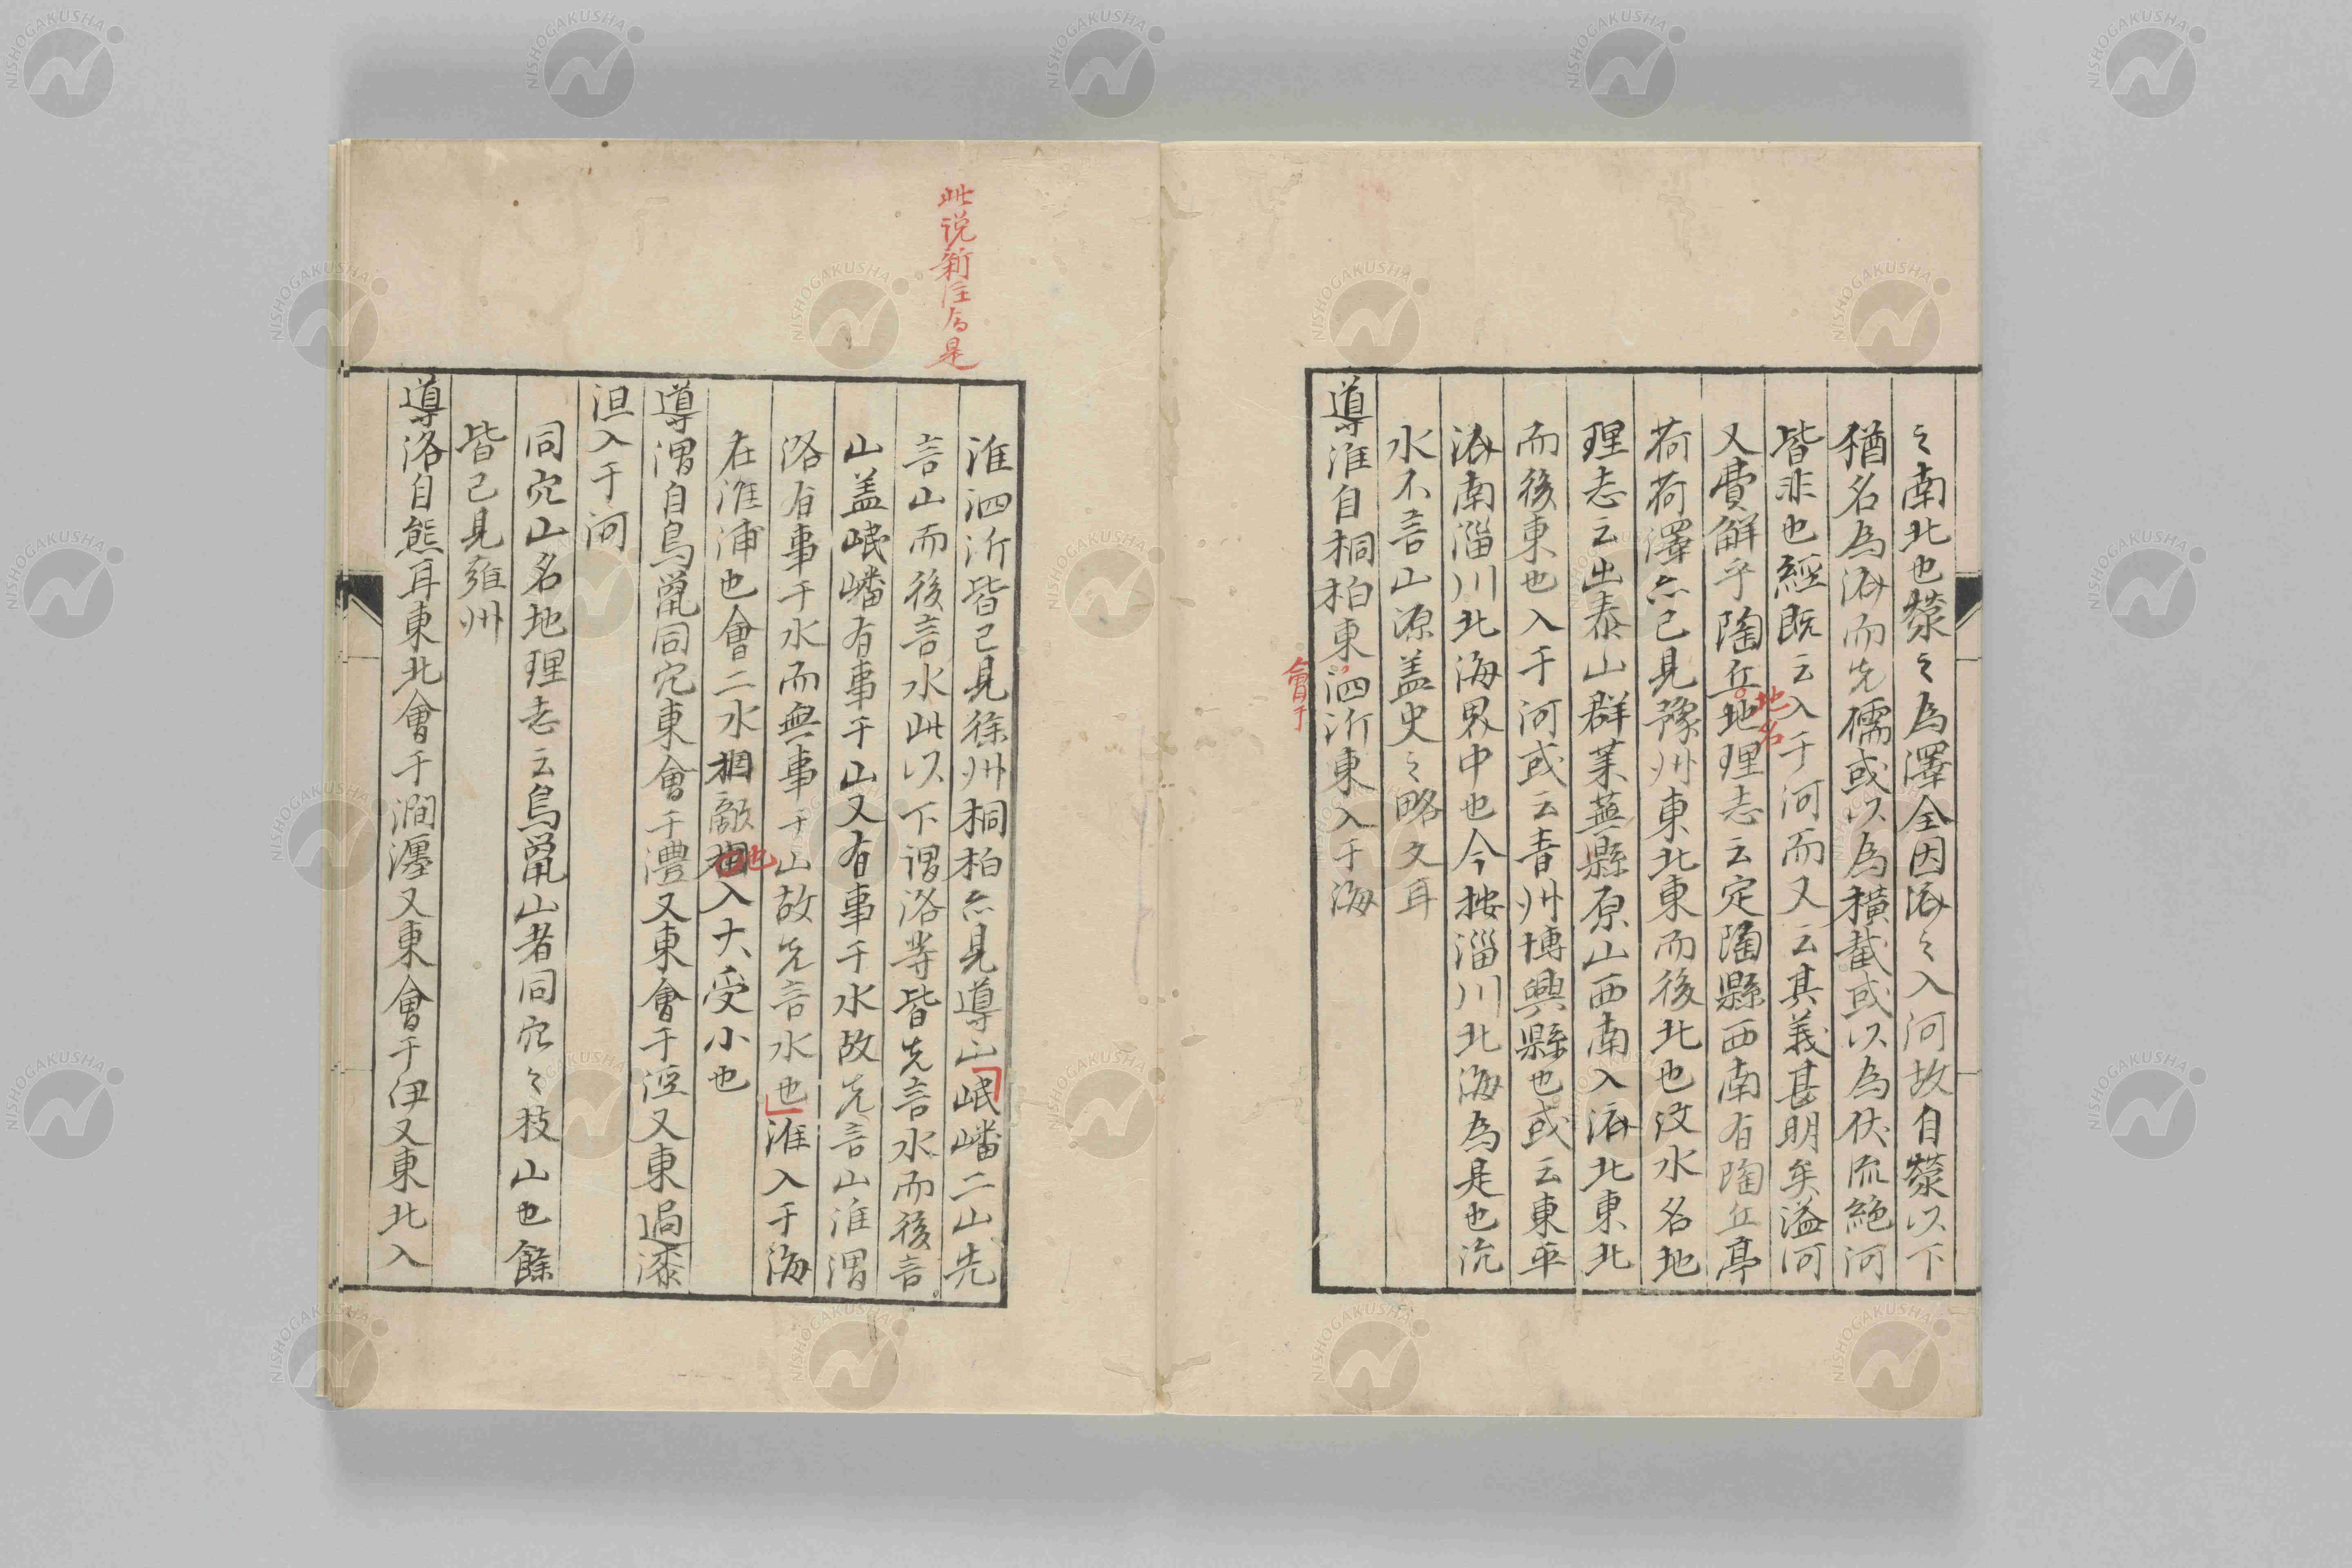 之南北也滎之為澤全因泲之入河故自滎以下
猶名為泲而先儒或以為横截或以為伏流絶河
皆非也經既云入于河而又云其義甚明矣溢河
又費解乎陶丘地理志云定陶縣西南有陶丘亭
地名
荷荷澤亦已見豫州東北東而後北也汶水名地
理志云出泰山群莱蕪縣原山西南入泲北東北
而後東也入于河或云青州博興縣也或云東平
泲南淄川北海界中也今按淄川北海為是也沇
水不言山源盖史之略文耳
導淮自桐柏東泗沂東入于海
會于
此说新注為是
淮泗沂皆已見徐州桐柏亦見導山岷嶓二山先
言山而後言水此以下謂洛等皆先言水而後言
山盖岷嶓有事于山又有事于水故先言山淮渭
洛有事于水而無事于山故先言水也淮入于海
在淮浦也會二水相敵相入大受小也
也
導渭自鳥鼠同穴東會于澧又東會于涇又東過漆
沮入于河
同穴山名地理志云鳥鼠山者同穴之枝山也餘
皆已見雍州
導洛自熊耳東北會于澗瀍又東會于伊又東北入
NISHOGAKUSHA